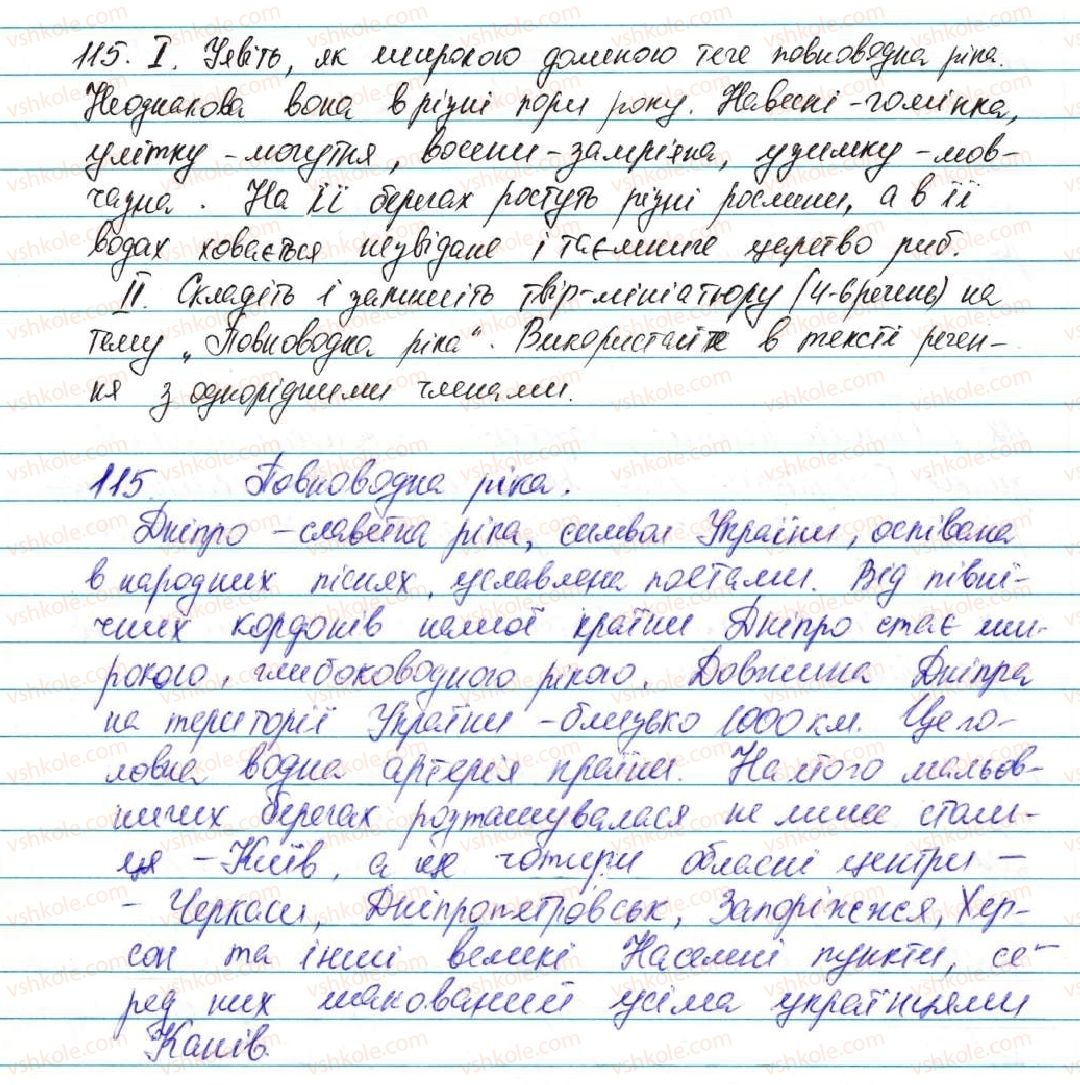 115. I. Уявіть, як широкою долиною тече повноводна ріка.
Неоднакова вона в різні пори року. Навесні - гомінка,
улітку - могутня, восени - замріяна, узимку - мов-
чазна. На її берегах ростуть різні рослини, а в її
водах ховається незвідане і таємниче царство риб.
II. Складіть і запишіть твір-мініатюру (4-6речень) на
тему „Повноводна ріка“. Використайте в тексті речен-
ня з однорідними членами.
115. Повноводна ріка.
Дніпро - славетна ріка, символ України, оспівана
в народних піснях, уславлена поетами. Від півні-
чних кордонів нашої країни Дніпро стає ши-
рокою, глибоководною рікою. Довжина Дніпра
на території України - близько 1000 км. Це го-
ловна водна артерія країни. На його мальов-
ничих берегах розташувалася не лише столи-
ця - Київ, а ще чотири обласні центри -
- Черкаси, Дніпропетровськ, Запоріжжя, Хер-
сон та інші великі Населені пункти, се-
ред них шанований усіма українцями
Канів.